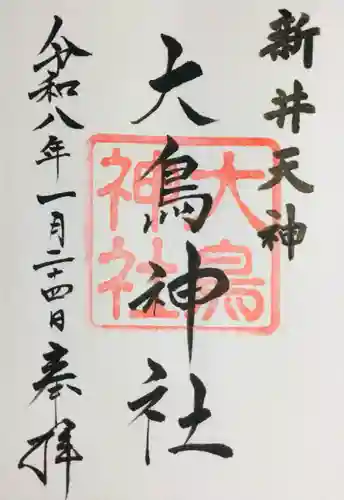 新井天神
大鳥神社
大鳥
神社
令和八年一月二十四日奉拝